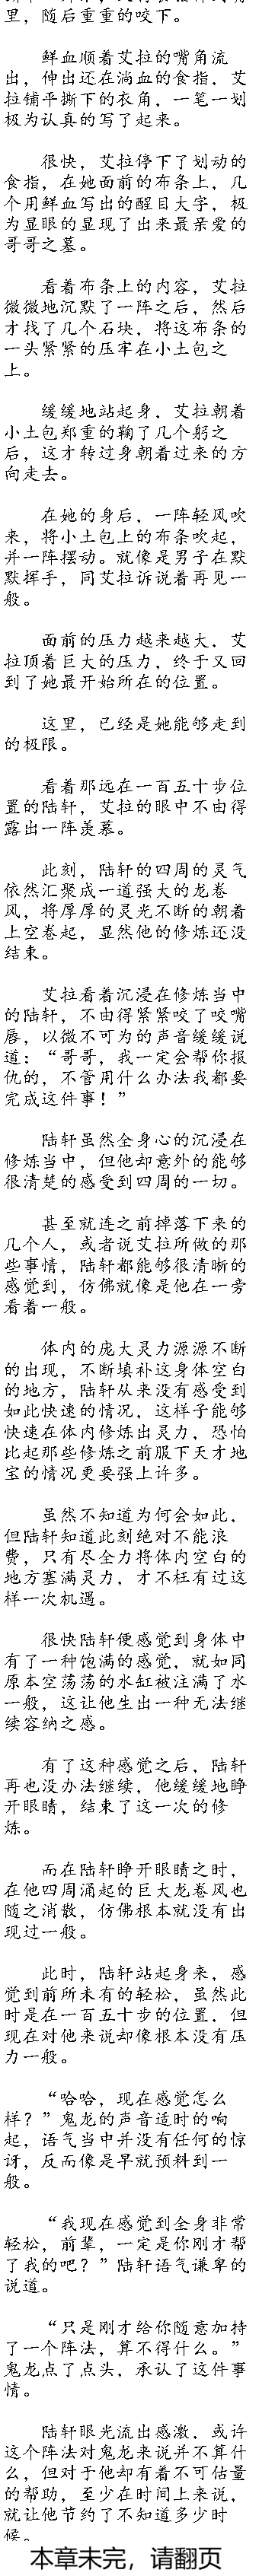 里，随后重重的咬下。
鲜血顺着艾拉的嘴角流
出，伸出还在淌血的食指，艾
拉铺平撕下的衣角，一笔一划
极为认真的写了起来。
很快，艾拉停下了划动的
食指，在她面前的布条上，几
个用鲜血写出的醒目大字，极
为显眼的显现了出来最亲爱的
哥哥之墓。
看着布条上的内容，艾拉
微微地沉默了一阵之后，然后
才找了几个石块，将这布条的
一头紧紧的压牢在小土包之
上。
缓缓地站起身，艾拉朝着
小土包郑重的鞠了几个躬之
后，这才转过身朝着过来的方
向走去。
在她的身后，一阵轻风吹
来，将小土包上的布条吹起，
并一阵摆动。就像是男子在默
默挥手，同艾拉诉说着再见一
般。
面前的压力越来越大，艾
拉顶着巨大的压力，终于又回
到了她最开始所在的位置。
这里，已经是她能够走到
的极限。
看着那远在一百五十步位
置的陆轩，艾拉的眼中不由得
露出一阵羡慕。
此刻，陆轩的四周的灵气
依然汇聚成一道强大的龙卷
风，将厚厚的灵光不断的朝着
上空卷起，显然他的修炼还没
结束。
艾拉看着沉浸在修炼当中
的陆轩，不由得紧紧咬了咬嘴
唇，以微不可为的声音缓缓说
道：“哥哥，我一定会帮你报
仇的，不管用什么办法我都要
完成这件事！”
陆轩虽然全身心的沉浸在
修炼当中，但他却意外的能够
很清楚的感受到四周的一切。
甚至就连之前掉落下来的
几个人，或者说艾拉所做的那
些事情，陆轩都能够很清晰的
感觉到，仿佛就像是他在一旁
看着一般。
体内的庞大灵力源源不断
的出现，不断填补这身体空白
的地方，陆轩从来没有感受到
如此快速的情况，这样子能够
快速在体内修炼出灵力，恐怕
比起那些修炼之前服下天才地
宝的情况更要强上许多。
虽然不知道为何会如此，
但陆轩知道此刻绝对不能浪
费，只有尽全力将体内空白的
地方塞满灵力，才不枉有过这
样一次机遇。
很快陆轩便感觉到身体中
有了一种饱满的感觉，就如同
原本空荡荡的水缸被注满了水
一般，这让他生出一种无法继
续容纳之感。
有了这种感觉之后，陆轩
再也没办法继续，他缓缓地睁
开眼睛，结束了这一次的修
炼。
而在陆轩睁开眼睛之时，
在他四周涌起的巨大龙卷风也
随之消散，仿佛根本就没有出
现过一般。
此时，陆轩站起身来，感
觉到前所未有的轻松，虽然此
时是在一百五十步的位置，但
现在对他来说却像根本没有压
力一般。
“哈哈，现在感觉怎么
样？”鬼龙的声音适时的响
起，语气当中并没有任何的惊
讶，反而像是早就预料到一
般。
“我现在感觉到全身非常
轻松，前辈，一定是你刚才帮
了我的吧？”陆轩语气谦卑的
说道。
“只是刚才给你随意加持
了一个阵法，算不得什么。”
鬼龙点了点头，承认了这件事
情。
陆轩眼光流出感激，或许
这个阵法对鬼龙来说并不算什
么，但对于他却有着不可估量
的帮助，至少在时间上来说，
就让他节约了不知道多少时
候。
本章未完，请翻页